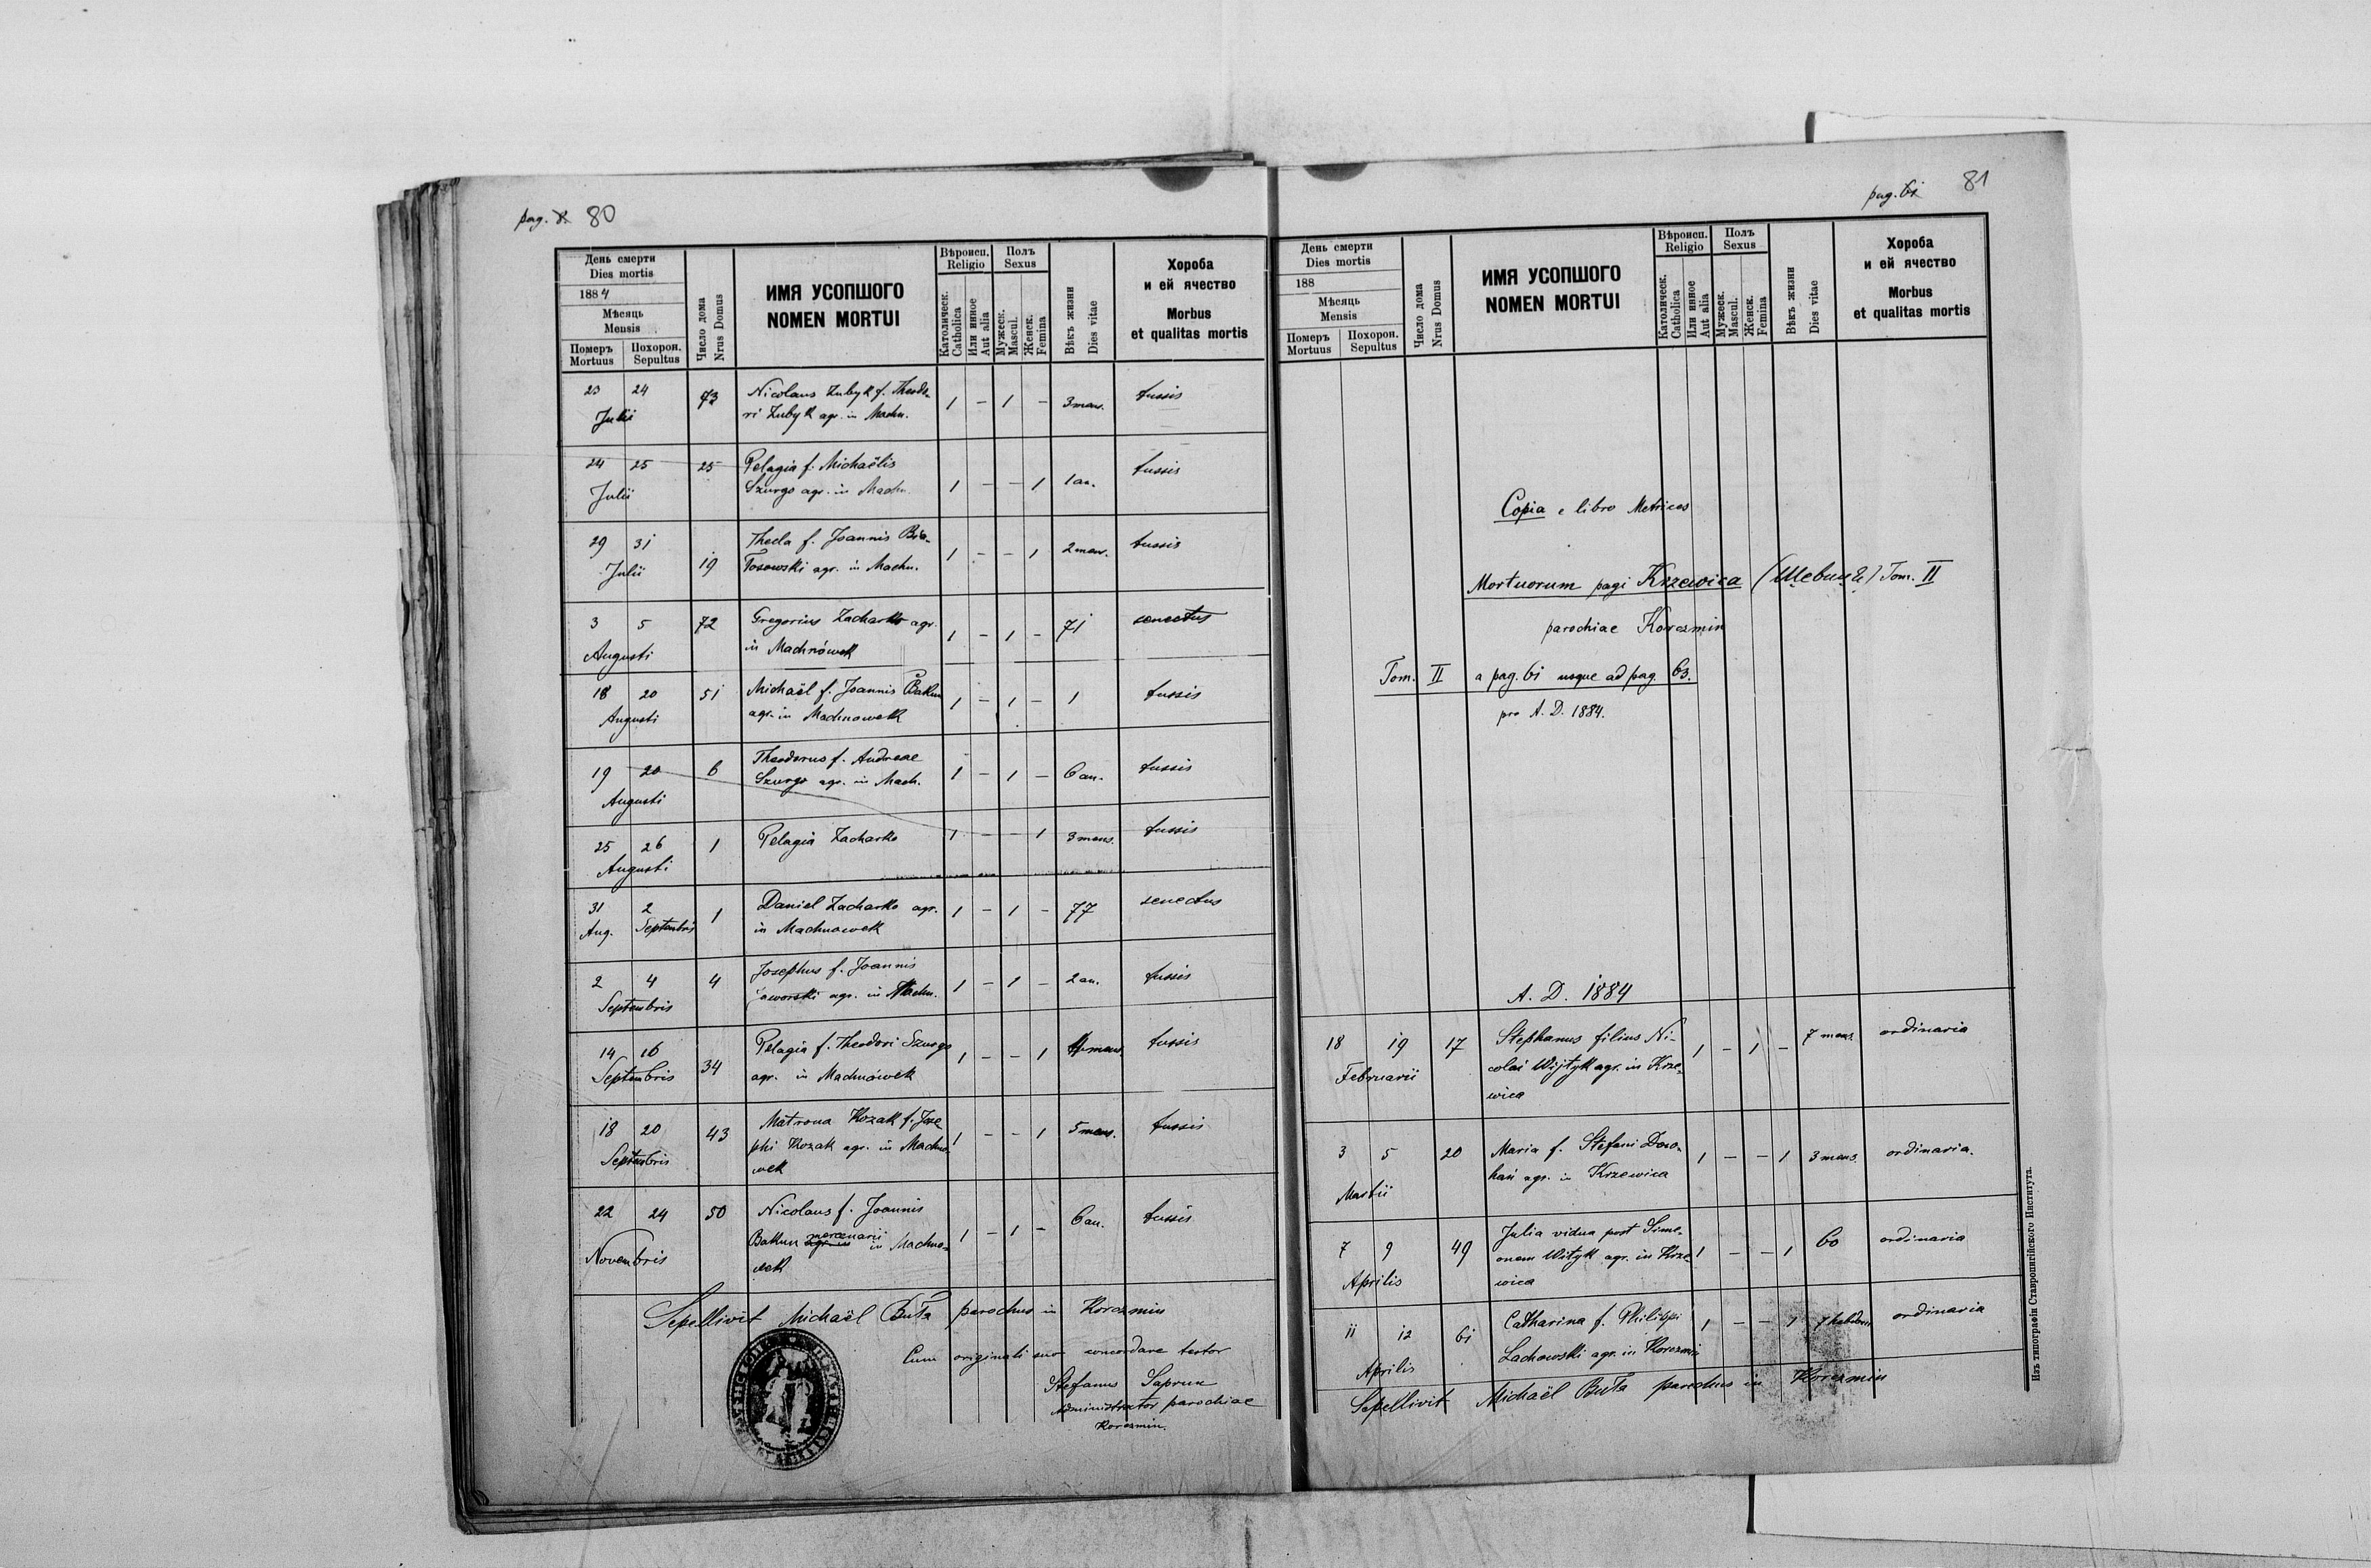 pag. 80
День смерти
Dies mortis
1884
Мѣсяць
Mensis
Померъ
Mortuus
Похорон.
Sepultus
Число дома
Nrus Domus
ИМЯ УСОПШОГО
NOMEN MORTUI
Вѣроисп.
Religio
Католическ.
Catholica
Или инное
Aut alia
Полъ
Sexus
Мужеск.
Mascul.
Женск.
Femina
Вѣкъ жизни
Dies vitae
Хороба
и ей ячество
Morbus
et qualitas mortis
23 24 73 Nicolaus Zubyk f. Theodo- 1 - 1 - 3 mens. tussis
Julii ri Zubyk agr. in Machn.
24 25 25 Pelagia f. Michaëlis 1 - - 1 1 an. tussis
Julii Szurgo agr. in Machn.
29 31 19 Thecla f. Joannis Bia- 1 - - 1 2 mens. tussis
Julii łosowski agr. in Machn.
3 5 72 Gregorius Zacharko agr. 1 - 1 - 71 senectus
Augusti in Machnówek
18 20 51 Michaël f. Joannis Bakun 1 - 1 - 1 tussis
Augusti agr. in Machnowek
19 20 6 Theodorus f. Andreae 1 - 1 - 6 an. tussis
Augusti Szurgo agr. in Mach.
25 26 1 Pelagia Zacharko 1 - - 1 3 mens. tussis
Augusti
31 2 1 Daniel Zacharko agr. 1 - 1 - 77 senectus
Aug. Septembris in Machnowek
2 4 4 Josephus f. Joannis 1 - 1 - 2 an. tussis
Septembris Jaworski agr. in Machn.
14 16 34 Pelagia f. Theodori Szurgo 1 - - 1 4 mens. tussis
Septembris agr. in Machnówek
18 20 43 Matrona Kozak f. Jose 1 - - 1 5 mens. tussis
Septembris phi Kozak agr. in Machno-
wek
22 24 50 Nicolaus f. Joannis 1 - 1 - 6 an. tussis
Novembris Bakun mercenarii in Machno-
wek
Sepellivit Michaël Buła parochus in Korczmin
Cum originali suo concordare testor
Stefanus Saprun
Administrator parochiae
Korczmin.
pag. 61 81
День смерти
Dies mortis
188
Мѣсяць
Mensis
Померъ
Mortuus
Похорон.
Sepultus
Число дома
Nrus Domus
ИМЯ УСОПШОГО
NOMEN MORTUI
Вѣроисп.
Religio
Католическ.
Catholica
Или инное
Aut alia
Полъ
Sexus
Мужеск.
Mascul.
Женск.
Femina
Вѣкъ жизни
Dies vitae
Хороба
и ей ячество
Morbus
et qualitas mortis
Copia e libro Metrices
Mortuorum pagi Krzewica Tom. II
parochiae Korczmin
Tom. II a pag. 61 usque ad pag. 63.
pro A. D. 1884.
A. D. 1884
18 19 17 Stephanus filius Ni- 1 - 1 - 7 mens. ordinaria
Februarii colai Wijtyk agr. in Krze-
wica
3 5 20 Maria f. Stefani Dow- 1 - - 1 3 mens. ordinaria.
Martii hań agr. in Krzewica
7 9 49 Julia vidua post Sime- 1 - - 1 60 ordinaria
Aprilis onem Witÿk agr. in Krze-
wica
11 12 61 Catharina f. Philippi 1 - - 1 7 hebdom ordinaria
Aprilis Lachowski agr. in Korczmin
Sepellivit Michaël Buła parochus in Korczmin
Изъ типографіи Ставропигійского Института.